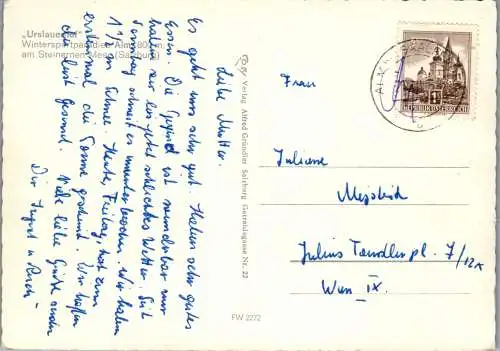 „Urslauerhof"
Wintersportparadies Alm, 800 m,
am Steinernen Meer (Salzburg)
Liebe Mutter.
Es geht uns sehr gut. Haben sehr gutes
Essen. Die Gegend ist wunderbar nur
haben wir bis jetzt schlechtes Wetter. Seit
Sonntag schneit es ununterbrochen. Wir haben
1½ m Schnee. Heute, Freitag, hat zum
erstenmal die Sonne gescheint. Wir hoffen
du bist Gesund. Viele liebe Grüße senden
Dir
Verlag Alfred Gründler Salzburg Getreidegasse Nr. 22
FW 2272
REPUBLIK ÖSTERREICH
Frau
Juliane
Julius Tandlerpl. 7/12a
Wien IX.